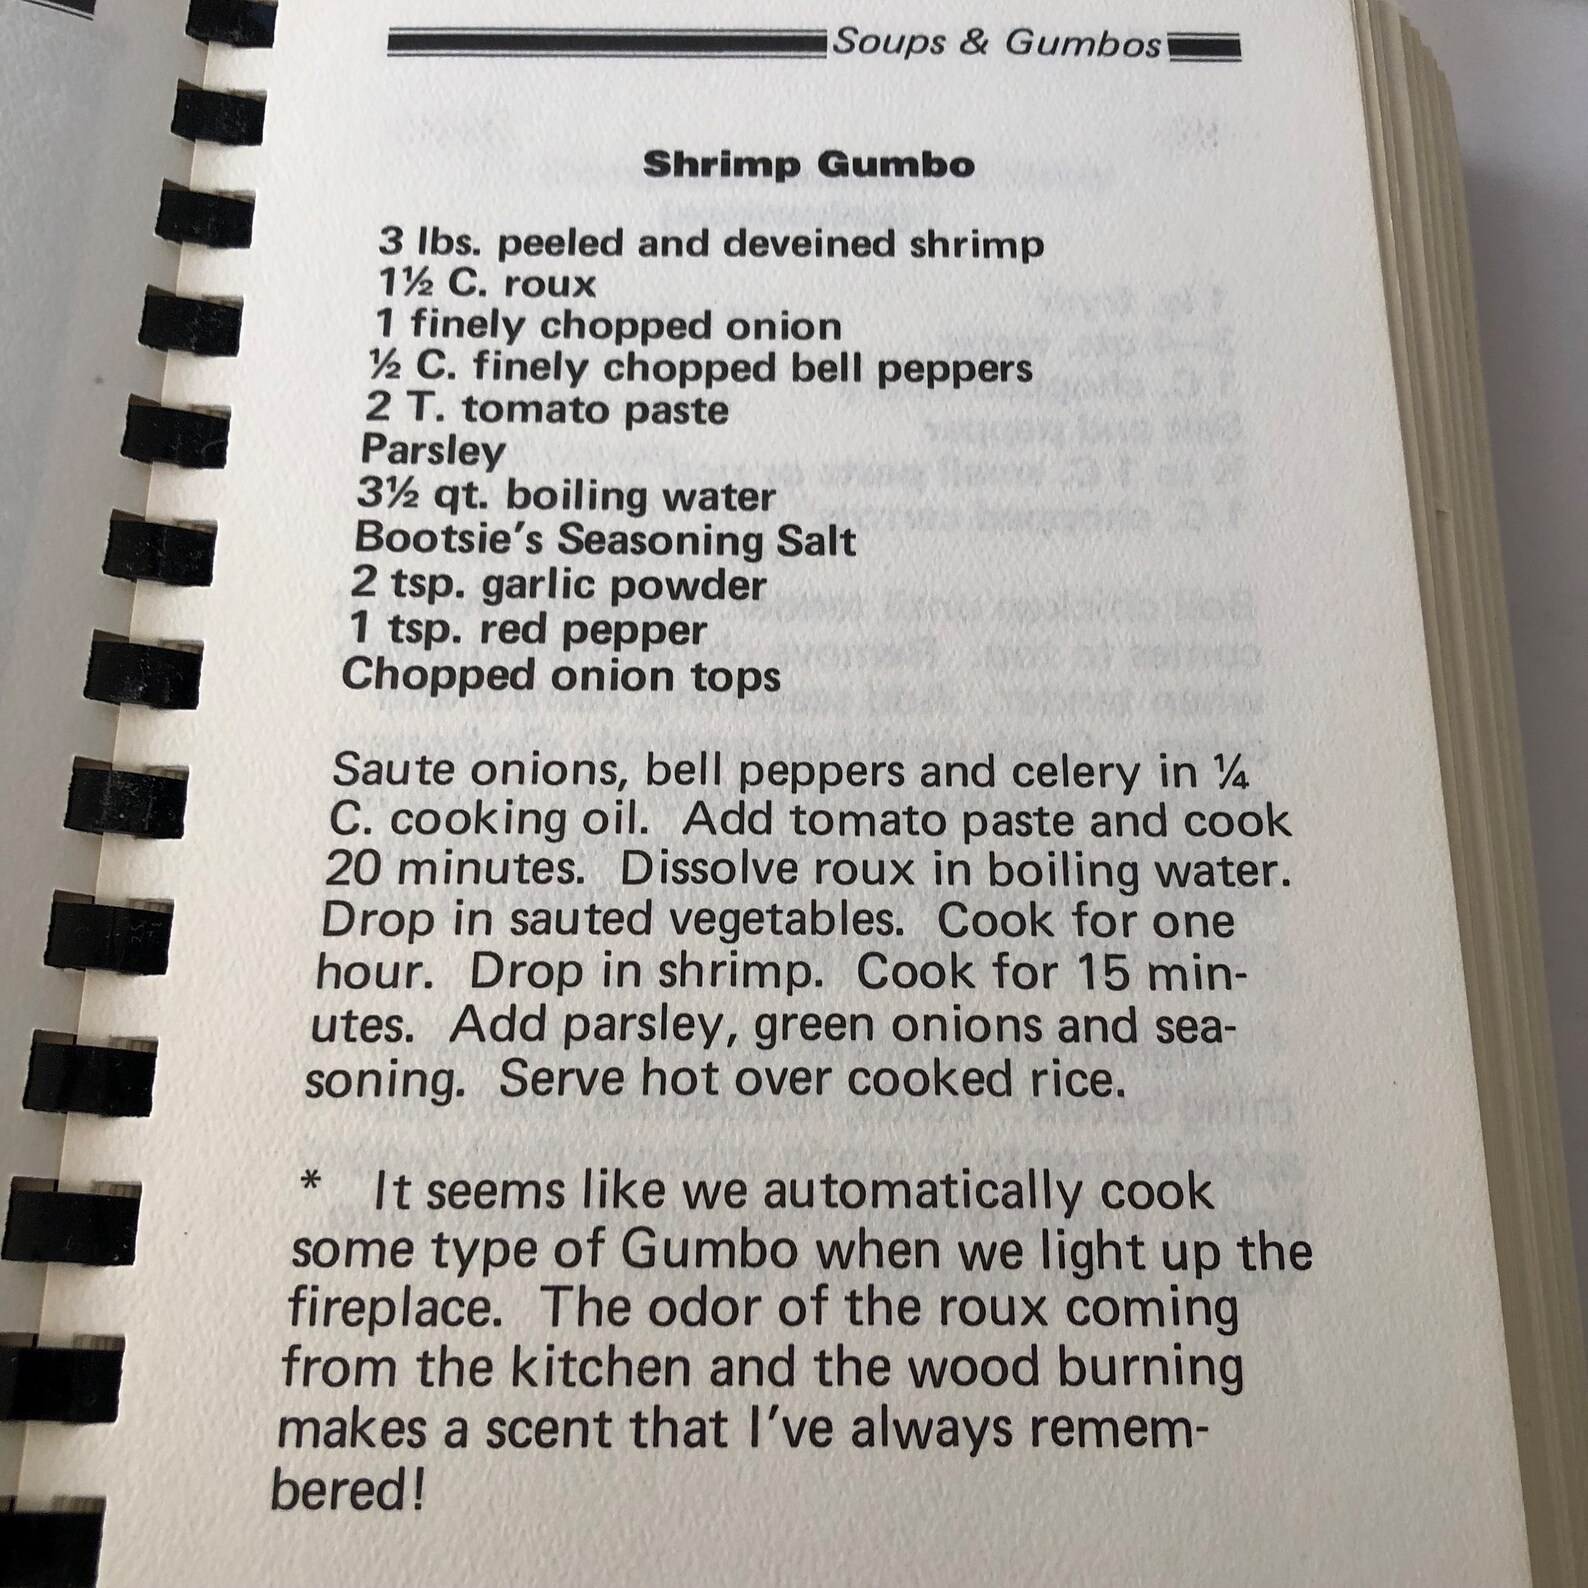 Soups & Gumbos
Shrimp Gumbo
3 lbs. peeled and deveined shrimp
1½ C. roux
1 finely chopped onion
½ C. finely chopped bell peppers
2 T. tomato paste
Parsley
3½ qt. boiling water
Bootsie's Seasoning Salt
2 tsp. garlic powder
1 tsp. red pepper
Chopped onion tops
Saute onions, bell peppers and celery in ¼
C. cooking oil. Add tomato paste and cook
20 minutes. Dissolve roux in boiling water.
Drop in sauted vegetables. Cook for one
hour. Drop in shrimp. Cook for 15 min-
utes. Add parsley, green onions and sea-
soning. Serve hot over cooked rice.
* It seems like we automatically cook
some type of Gumbo when we light up the
fireplace. The odor of the roux coming
from the kitchen and the wood burning
makes a scent that I've always remem-
bered!